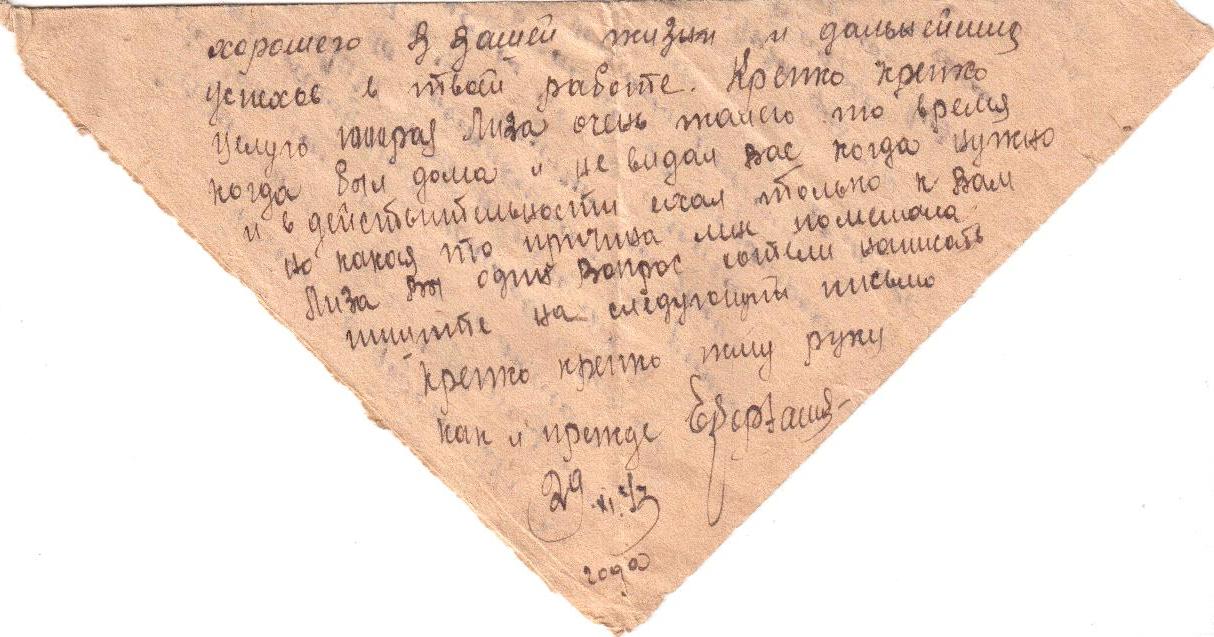 хорошего в вашей жизни и дальнейших
успехов в твоей работе. Крепко крепко
целую Лиза очень жалею то время
когда был дома и не видал вас когда нужно
и в действительности ехал только к вам
но какая то причина мне помешала
Лиза вы один вопрос хотели написать
пишите на следующий письмо
Крепко крепко жму руку
как и прежде
29 XI.
года